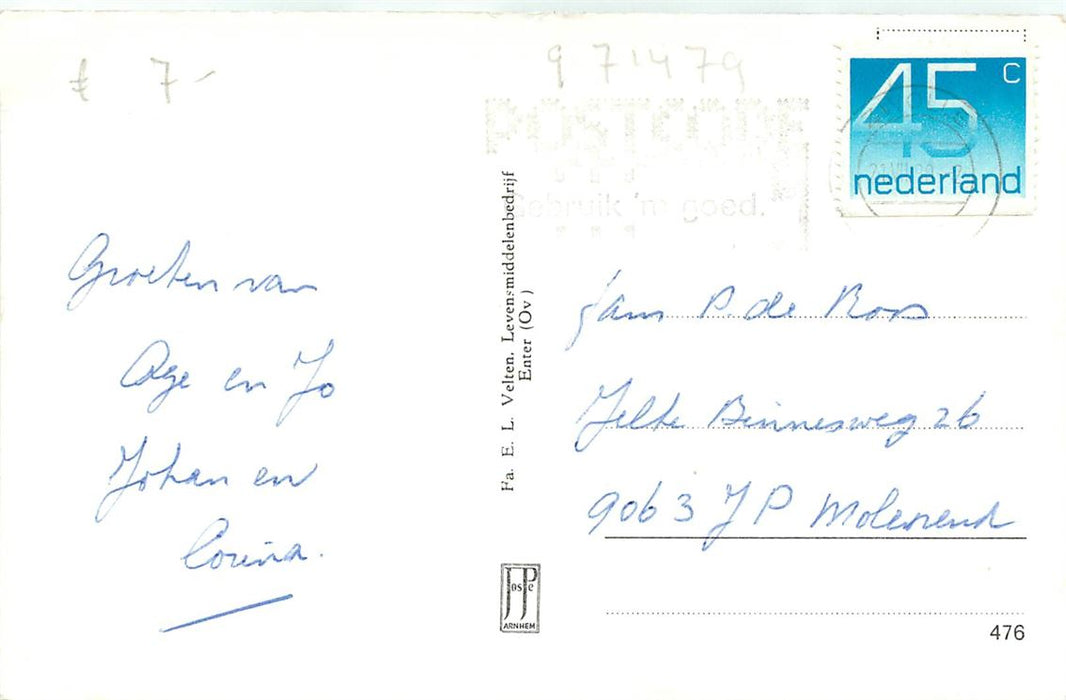 £ 7,-
971479
POSTCODE
Gebruik 'm goed.
45 C
nederland
Groeten van
Age en Jo
Johan en
Corina.
Fa. E. L. Velten, Levensmiddelenbedrijf
Enter (Ov)
Fam P. de Roos
Jelte Binnesweg 26
9063 JP Molenend
JosPe
ARNHEM
476